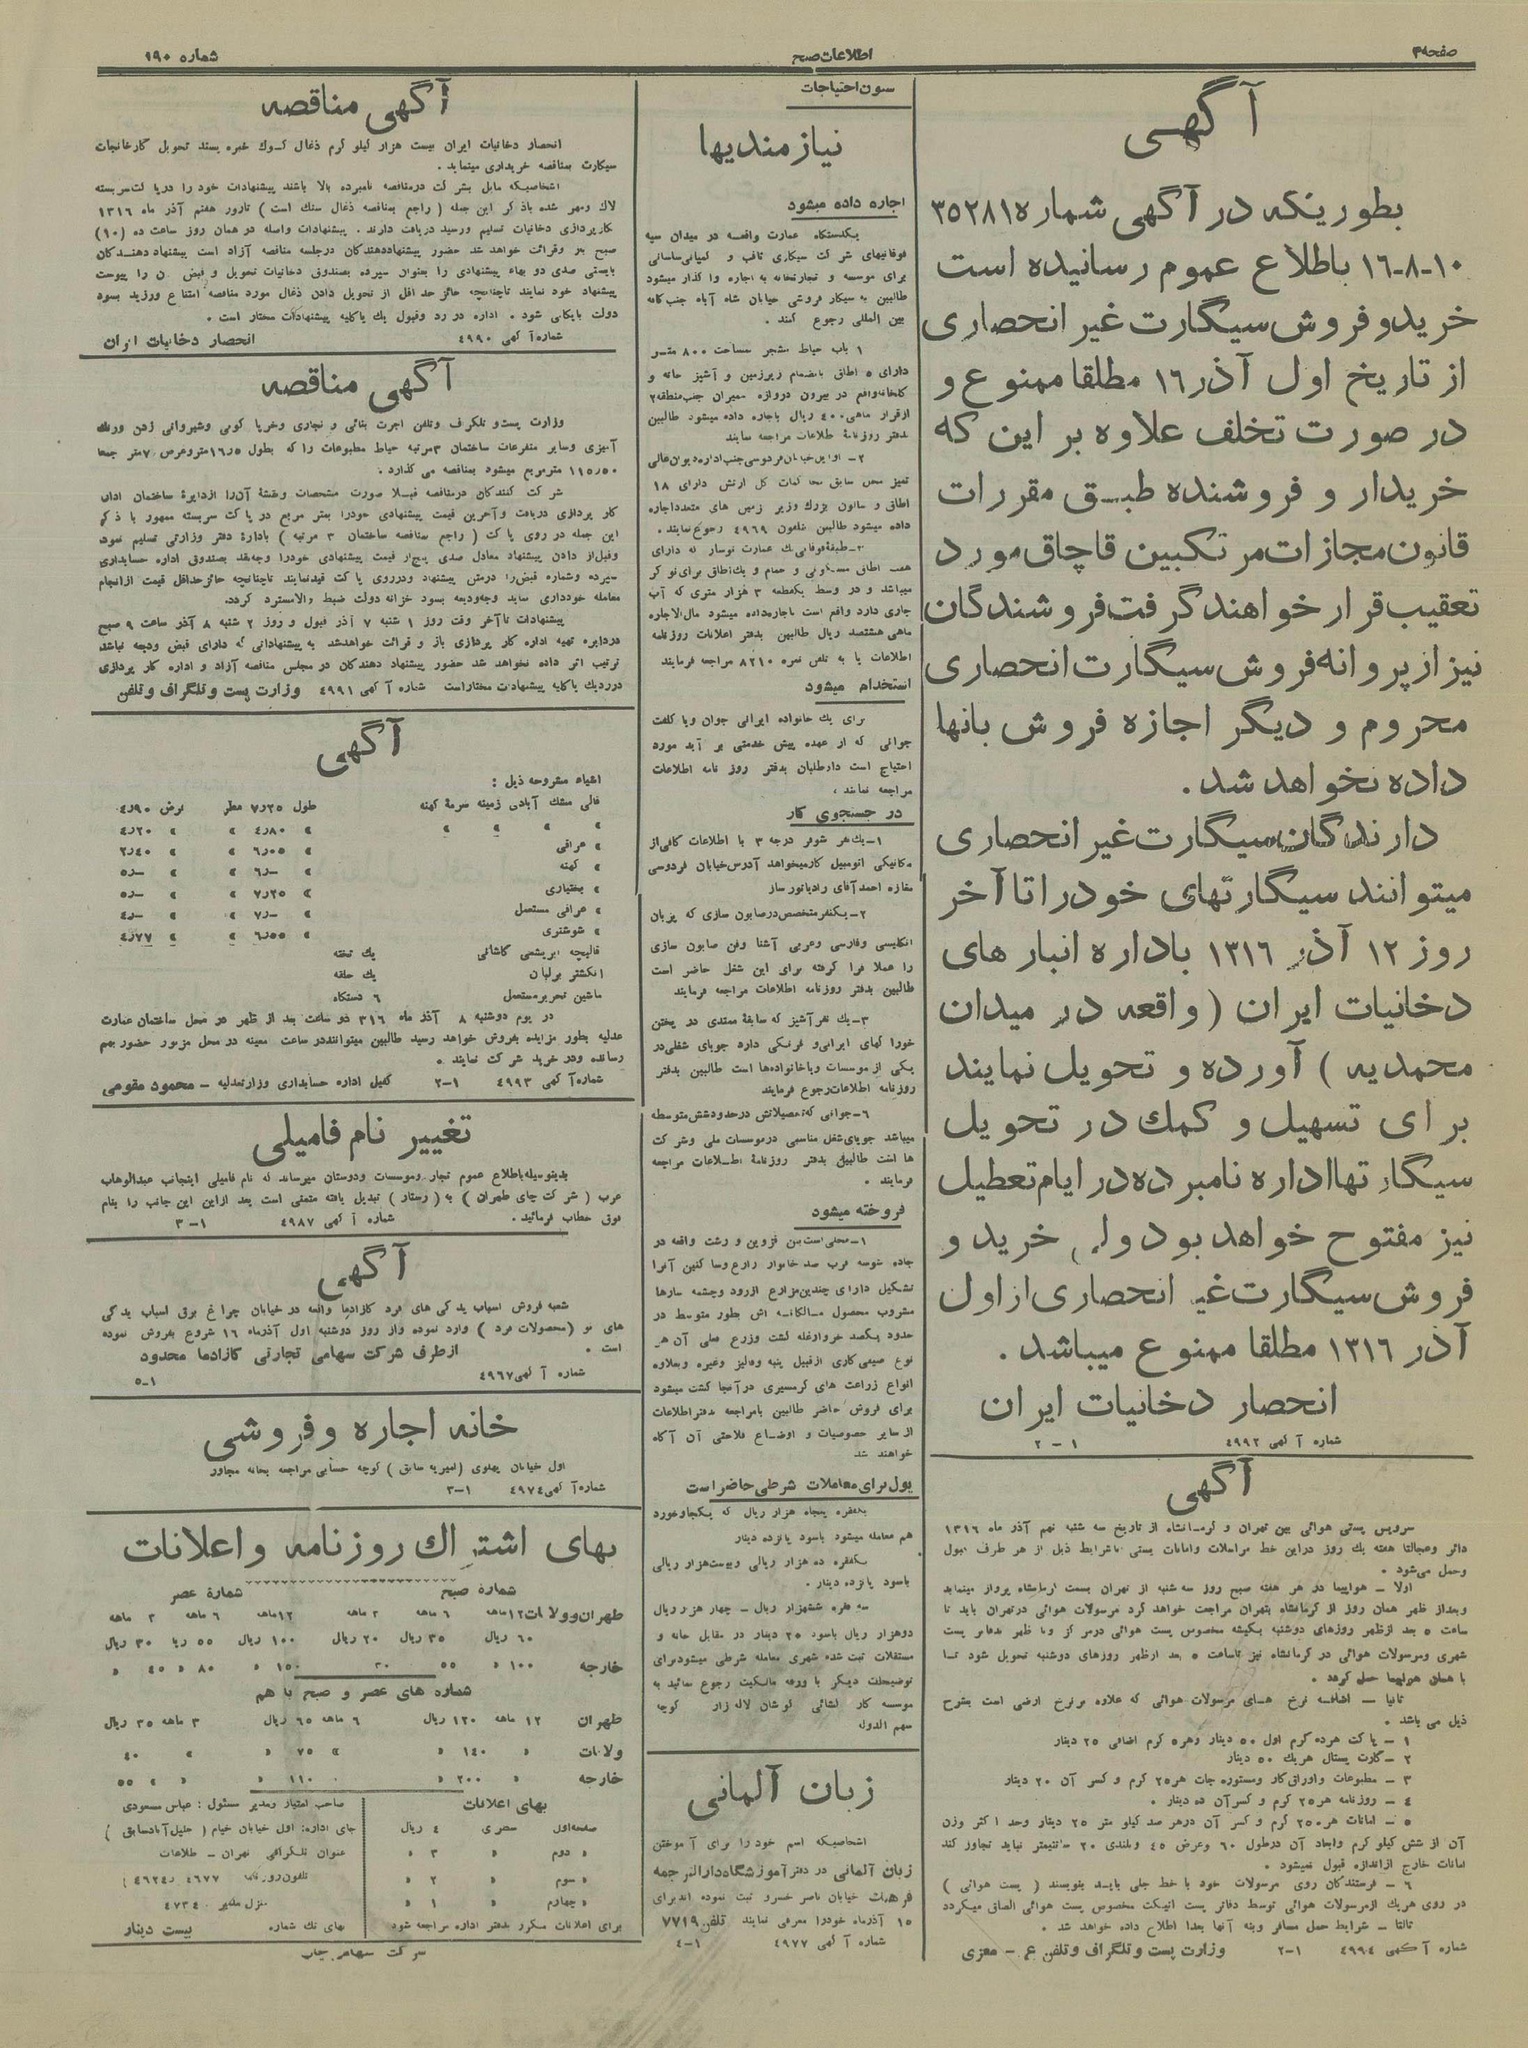 صفحه ۴
اطلاعات صبح
شماره ۱۹۰
آگهی
بطوریکه در آگهی شماره ۳۵۲۸۱
۱۰-۸-۱۶ باطلاع عموم رسانیده است
خرید و فروش سیگارت غیر انحصاری
از تاریخ اول آذر ۱۶ مطلقا ممنوع و
در صورت تخلف علاوه بر این که
خریدار و فروشنده طبق مقررات
قانون مجازات مرتکبین قاچاق مورد
تعقیب قرار خواهند گرفت فروشندگان
نیز از پروانه فروش سیگارت انحصاری
محروم و دیگر اجازه فروش بانها
داده نخواهد شد.
دارندگان سیگارت غیر انحصاری
میتوانند سیگارتهای خود را تا آخر
روز ۱۲ آذر ۱۳۱۶ باداره انبار های
دخانیات ایران (واقعه در میدان
محمدیه) آورده و تحویل نمایند
برای تسهیل و کمك در تحویل
سیگارتها اداره نامبرده در ایام تعطیل
نیز مفتوح خواهد بود ولی خرید و
فروش سیگارت غیر انحصاری از اول
آذر ۱۳۱۶ مطلقا ممنوع میباشد.
انحصار دخانیات ایران
شماره آگهی ۴۹۹۲ ۱-۲
آگهی
سرویس پستی هوائی بین تهران و کرمانشاه از تاریخ سه شنبه نهم آذر ماه ۱۳۱۶
دائر و عجالتا هفته یك روز دراین خط مراسلات و امانات پستی باشرایط ذیل از هر طرف قبول
و حمل میشود.
اولا - هواپیما در هر هفته صبح روز سه شنبه از تهران بسمت کرمانشاه پرواز مینماید
و بعداز ظهر همان روز از کرمانشاه بتهران مراجعت خواهد کرد مرسولات هوائی درتهران باید تا
ساعت ۵ بعد ازظهر روزهای دوشنبه بگیشه مخصوص پست هوائی درمرکز و تا ظهر بدفاتر پست
شهری و مرسولات هوائی در کرمانشاه نیز تاساعت ۵ بعد ازظهر روزهای دوشنبه تحویل شود تا
با همان هواپیما حمل گردد.
ثانیا - اضافه نرخ های مرسولات هوائی که علاوه برنرخ ارضی است بشرح
ذیل می باشد.
۱- پاکت هرده گرم اول ۵۰ دینار وهره گرم اضافی ۲۵ دینار
۲- کارت پستال هریك ۵۰ دینار
۳- مطبوعات و اوراق کار و مستوره جات هر ۲۵ گرم و کسر آن ۲۰ دینار
۴- روزنامه هر ۲۵ گرم و کسرآن ده دینار.
۵- امانات هر ۲۵۰ گرم و کسر آن درهر صد کیلو متر ۲۵ دینار وحد اکثر وزن
آن از شش کیلو گرم وابعاد آن درطول ۶۰ وعرض ۴۵ وبلندی ۲۰ سانتیمتر نباید تجاوز کند
امانات خارج ازاندازه قبول نمیشود.
۶- فرستندگان روی مرسولات خود با خط جلی باید بنویسند (پست هوائی)
در روی هریك ازمرسولات هوائی توسط دفاتر پست اتیکت مخصوص پست هوائی الصاق میگردد
ثالثا - شرایط حمل مسافر و بنه آنها بعدا اطلاع داده خواهد شد.
شماره آگهی ۴۹۹۴ ۱-۲ وزارت پست و تلگراف و تلفن ع - معزی
ستون احتیاجات
نیازمندیها
اجاره داده میشود
یکدستگاه عمارت واقعه در میدان سپه
فوقانیهای شرکت سیگاری ثاقب و کمپانی ساسانی
برای موسسه و تجارتخانه به اجاره واگذار میشود
طالبین به سیگار فروشی خیابان شاه آباد جنب کافه
بین المللی رجوع کنند.
۱ باب حیاط مشجر مساحت ۸۰۰ متر
دارای ۵ اطاق بانضمام زیرزمین و آشپز خانه و
گلخانه واقع در بیرون دروازه شمیران جنب منطقه ۲
ازقرار ماهی ۴۰۰ ریال باجاره داده میشود طالبین
بدفتر روزنامهٔ اطلاعات مراجعه نمایند
۲- اول خیابان فردوسی جنب اداره دیوان عالی
تمیز محل سابق محاکمات کل ارتش دارای ۱۸
اطاق و سالون بزرگ وزیر زمین های متعدد اجاره
داده میشود طالبین تلفون ۴۹۶۹ رجوع نمایند.
۳- طبقهٔ فوقانی یك عمارت نوساز که دارای
هفت اطاق مسکونی و حمام و یك اطاق برای نوکر
میباشد و در وسط یکقطعه ۳ هزار متری که آب
جاری دارد واقع است باجاره داده میشود مال الاجاره
ماهی هشتصد ریال طالبین بدفتر اعلانات روزنامه
اطلاعات یا به تلفن نمره ۸۲۱۰ مراجعه فرمایند
استخدام میشود
برای یك خانواده ایرانی جوان ویا کلفت
جوانی که از عهده پیش خدمتی بر آید مورد
احتیاج است داوطلبان بدفتر روز نامه اطلاعات
مراجعه نمایند.
در جستجوی کار
۱- یك نفر شوفر درجه ۳ با اطلاعات کافی از
مکانیکی اتومبیل کارمیخواهد آدرس خیابان فردوسی
مغازه احمد آقای رادیاتور ساز
۲- یکنفر متخصص در صابون سازی که بزبان
انگلیسی وفارسی وعربی آشنا وفن صابون سازی
را عملا فرا گرفته برای این شغل حاضر است
طالبین بدفتر روزنامه اطلاعات مراجعه فرمایند
۳- یك نفر آشپز که سابقهٔ ممتدی در پختن
خوراکهای ایرانی و فرنگی دارد جویای شغلی در
یکی از موسسات ویا خانواده ها است طالبین بدفتر
روزنامه اطلاعات رجوع فرمایند
۶- جوانی که تحصیلاتش در حدود شش متوسطه
میباشد جویای شغل مناسبی درموسسات ملی وشرکت
ها است طالبین بدفتر روزنامهٔ اطلاعات مراجعه
فرمایند.
فروخته میشود
۱- محلی است بین قزوین و رشت واقعه در
جاده شوسه قرب صد خانوار زارع وساکنین آنرا
تشکیل دارای چندین مزارع ازرود وچشمه سارها
مشروب محصول سالانه اش بطور متوسط در
حدود یکصد خروار غله کشت وزرع فعلی آن هر
نوع صیفی کاری ازقبیل پنبه وجالیز وغیره وبعلاوه
انواع زراعت های گرمسیری درآنجا کشت میشود
برای فروش حاضر طالبین بامراجعه بدفتر اطلاعات
از سایر خصوصیات و اوضاع فلاحتی آن آگاه
خواهند شد
پول برای معاملات شرطی حاضر است
یکفقره پنجاه هزار ریال که یکجا و خورد
هم معامله میشود باسود پانزده دینار
یکفقره ده هزار ریالی و بیست هزار ریالی
باسود پانزده دینار.
سه فقره ششهزار ریال - چهار هزار ریال
دو هزار ریال باسود ۲۵ دینار در مقابل خانه و
مستغلات ثبت شده شهری معامله شرطی میشود برای
توضیحات دیگر با ورقه مالکیت رجوع نمائید به
موسسه کار گشائی کوشان لاله زار کوچه
سهم الدوله
زبان آلمانی
اشخاصیکه اسم خود را برای آموختن
زبان آلمانی در دفتر آموزشگاه دارالترجمه
فرهنگ خیابان ناصر خسرو ثبت نموده اند برای
۱۵ آذرماه خود را معرفی نمایند تلفن ۷۷۱۹
شماره آگهی ۴۹۷۷ ۱-۴
آگهی مناقصه
انحصار دخانیات ایران بیست هزار کیلو گرم ذغال کوك خبره پسند تحویل کارخانجات
سیگارت بمناقصه خریداری مینماید.
اشخاصیکه مایل بشرکت درمناقصه نامبرده بالا باشند پیشنهادات خود را درپاکت سربسته
لاك ومهر شده باذکر این جمله (راجع بمناقصه ذغال سنك است) تاروز هفتم آذر ماه ۱۳۱۶
بکارپردازی دخانیات تسلیم ورسید دریافت دارند. پیشنهادات واصله در همان روز ساعت ده (۱۰)
صبح باز وقرائت خواهد شد حضور پیشنهاددهندگان درجلسه مناقصه آزاد است پیشنهاد دهندگان
بایستی صدی دو بهاء پیشنهادی را بعنوان سپرده بصندوق دخانیات تحویل و قبض آن را پیوست
پیشنهاد خود نمایند تاچنانچه حائز حد اقل از تحویل دادن ذغال مورد مناقصه امتناع ورزید بسود
دولت بایگانی شود. اداره در رد وقبول یك یاکلیه پیشنهادات مختار است.
شماره آگهی ۴۹۹۰ انحصار دخانیات ایران
آگهی مناقصه
وزارت پست و تلگراف وتلفن اجرت بنائی و نجاری وخرپا کوبی وشیروانی زدن ورنك
آمیزی وسایر متفرعات ساختمان ۳ مرتبه حیاط مطبوعات را که بطول ۱۶٫۵ متر وعرض ۷ متر جمعا
۱۱۵٫۵۰ مترمربع میشود بمناقصه می گذارد.
شرکت کنندگان درمناقصه قبلا صورت مشخصات ونقشهٔ آن را ازدایرهٔ ساختمان اداره
کارپردازی دریافت وآخرین قیمت پیشنهادی خود را بمتر مربع در پاکت سربسته ممهور با ذکر
این جمله در روی پاکت (راجع بمناقصه ساختمان ۳ مرتبه) بادارهٔ دفتر وزارتی تسلیم نمود
وقبل از دادن پیشنهاد معادل صدی پنج از قیمت پیشنهادی خود را وجه نقد بصندوق اداره حسابداری
سپرده وشماره قبض را درمتن پیشنهاد ودرروی پاکت قید نمایند تاچنانچه حائز حداقل قیمت از انجام
معامله خودداری نماید وجه ودیعه بسود خزانه دولت ضبط والا مسترد گردد.
پیشنهادات تا آخر وقت روز ۱ شنبه ۷ آذر قبول و روز ۲ شنبه ۸ آذر ساعت ۹ صبح
دردایره تهیه اداره کار پردازی باز و قرائت خواهد شد به پیشنهاداتی که دارای قبض ودیعه نباشد
ترتیب اثر داده نخواهد شد حضور پیشنهاد دهندگان در مجلس مناقصه آزاد و اداره کار پردازی
درردیك یاکلیه پیشنهادات مختار است شماره آگهی ۴۹۹۱ وزارت پست و تلگراف و تلفن
آگهی
اشیاء مشروحه ذیل:
قالی مشك آبادی زمینه سرمهٔ کهنه طول ۷٫۲۵ متر عرض ۴٫۹۰
» » » » » ۴٫۸۰ » » ۴٫۲۰
» عراقی » ۶٫۰۵ » » ۲٫۴۰
» کهنه » ۶٫- » » ۵٫-
» بختیاری » ۷٫۲۵ » » ۵٫-
» عراقی مستعمل » ۷٫- » » ۴٫-
» شوشتری » ۶٫۵۵ » » ۴٫۷۷
قالیچه ابریشمی کاشانی یك تخته
انگشتر برلیان یك حلقه
ماشین تحریر مستعمل ۶ دستگاه
در یوم دوشنبه ۸ آذر ماه ۳۱۶ دو ساعت بعد از ظهر در محل ساختمان عمارت
عدلیه بطور مزایده بفروش خواهد رسید طالبین میتوانند در ساعت معینه در محل مزبور حضور بهم
رسانده ودر خرید شرکت نمایند.
شماره آگهی ۴۹۹۳ ۱-۲ کفیل اداره حسابداری وزارت عدلیه - محمود مقومی
تغییر نام فامیلی
بدینوسیله باطلاع عموم تجار وموسسات ودوستان میرساند که نام فامیلی اینجانب عبدالوهاب
عرب (شرکت چای طهران) به (رستار) تبدیل یافته متمنی است بعد ازاین این جانب را بنام
فوق خطاب فرمائید. شماره آگهی ۴۹۸۷ ۱-۳
آگهی
شعبه فروش اسباب یدکی های فرد کازادما واقعه در خیابان چراغ برق اسباب یدکی
های نو (محصولات فرد) وارد نموده واز روز دوشنبه اول آذرماه ۱۶ شروع بفروش نموده
است. ازطرف شرکت سهامی تجارتی کازادما محدود
شماره آگهی ۴۹۶۷ ۱-۵
خانه اجاره و فروشی
اول خیابان پهلوی (امیریه سابق) کوچه حسابی مراجعه بخانه مجاور
شماره آگهی ۴۹۷۴ ۱-۳
بهای اشتراك روزنامه و اعلانات
شمارهٔ صبح شمارهٔ عصر
طهران و ولایات ۱۲ ماهه ۶ ماهه ۳ ماهه ۱۲ ماهه ۶ ماهه ۳ ماهه
۶۰ ریال ۳۵ ریال ۲۰ ریال ۱۰۰ ریال ۵۵ ریال ۳۰ ریال
خارجه ۱۰۰ » ۵۵ ۳۰ ۱۵۰ » ۸۰ » ۴۵ »
شماره های عصر و صبح با هم
طهران ۱۲ ماهه ۱۲۰ ریال ۶ ماهه ۶۵ ریال ۳ ماهه ۳۵ ریال
ولایات » ۱۴۰ » » ۷۵ » » ۴۰
خارجه » ۲۰۰ » ۱۱۰ » » » ۵۵
بهای اعلانات
صفحه اول سطری ۴ ریال
» دوم » ۳ »
» سوم » ۲ »
» چهارم » ۱ »
برای اعلانات مکرر بدفتر اداره مراجعه شود
صاحب امتیاز ومدیر مسئول: عباس مسعودی
جای اداره: اول خیابان خیام (جلیل آباد سابق)
عنوان تلگرافی تهران - اطلاعات
تلفون روزنامه ۴۶۷۷ و ۴۶۲۴
منزل مدیر ۴۷۳۴
بهای تك شماره بیست دینار
شرکت سهامی چاپ